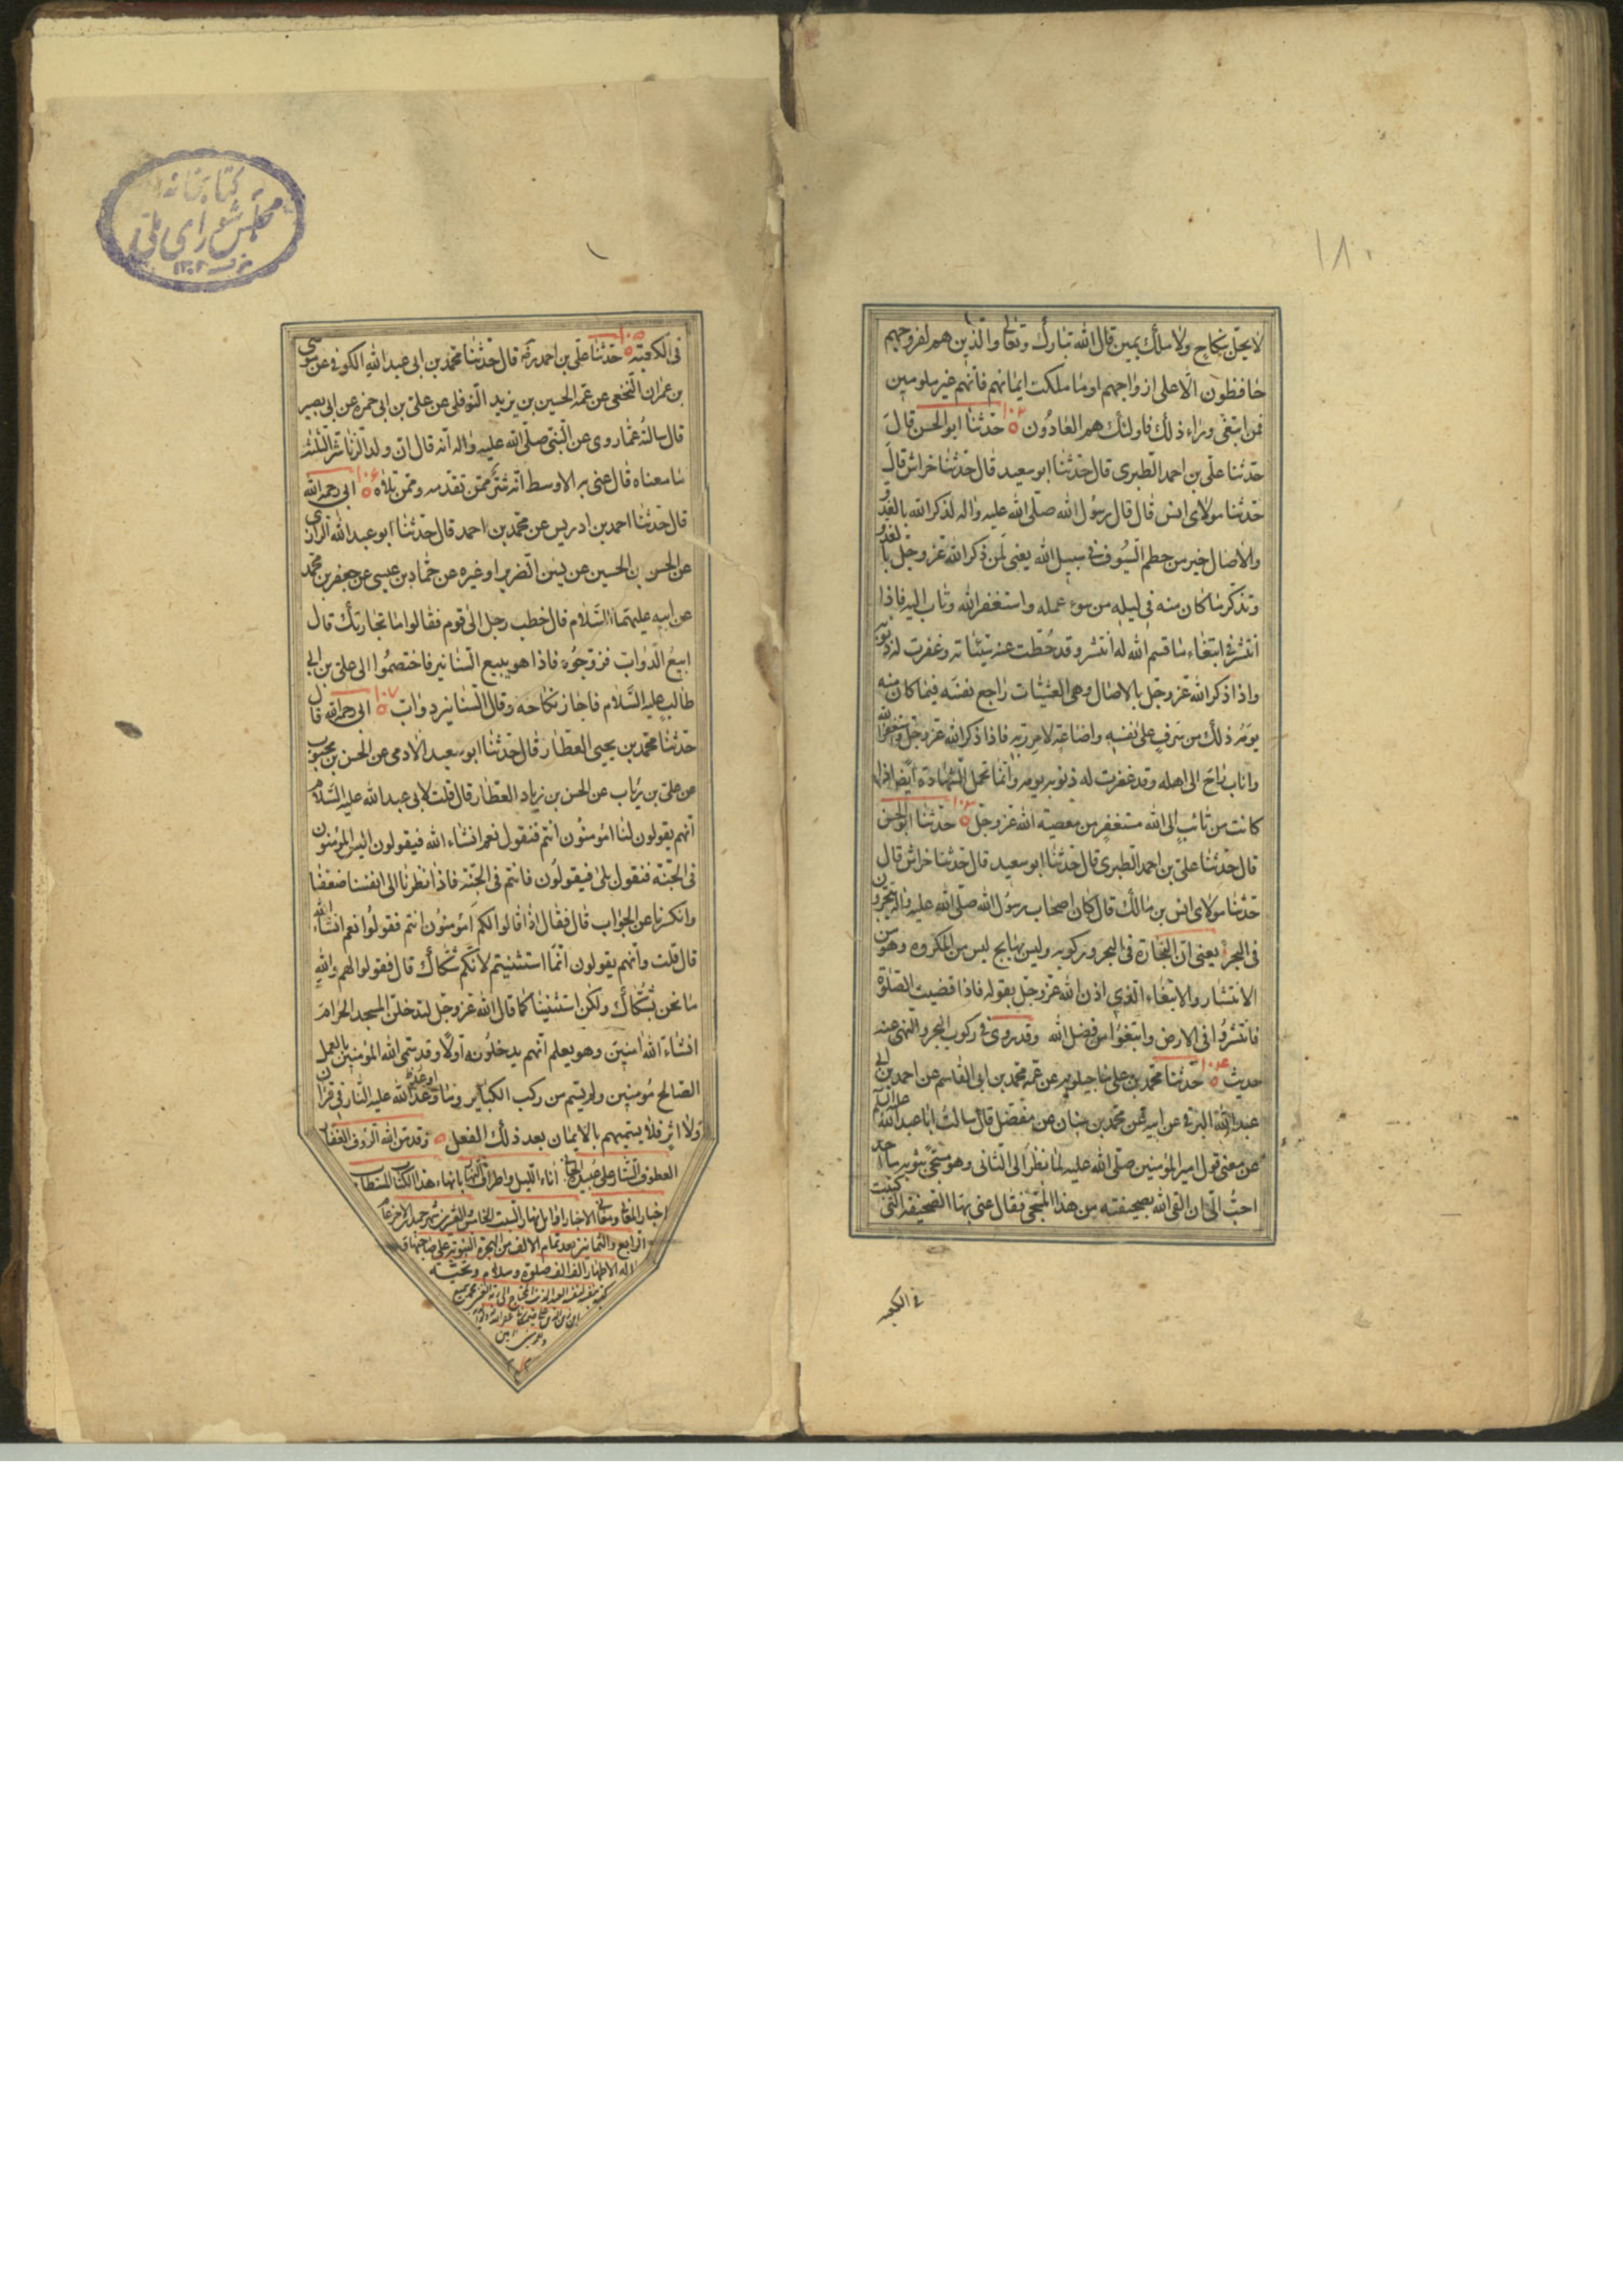 ١٨٠
لا يحل بنكاح ولا ملك يمين قال الله تبارك وتعالى والذين هم لفروجهم
حافظون الا على ازواجهم او ما ملكت ايمانهم فانهم غير ملومين
فمن ابتغى وراء ذلك فاولئك هم العادون ١٠٢ حدثنا ابو الحسن قال
حدثنا على بن احمد الطبرى قال حدثنا ابو سعيد قال حدثنا خراش قال
حدثنا مولاى انس قال قال رسول الله صلى الله عليه واله لذكر الله بالغدو
والاصال خير من حطم السيوف فى سبيل الله يعنى لمن ذكر الله عز وجل بالغدو
وتذكر ما كان منه فى ليله من سوء عمله واستغفر الله وتاب اليه فاذا
انتشر فى ابتغاء ما قسم الله له انتشر وقد حطت عنه سيئاته وغفرت له ذنوبه
واذا ذكر الله عز وجل بالاصال وهى العشيات راجع نفسه فيما كان منه
يومه ذلك من سرف على نفسه واضاعته لامر ربه فاذا ذكر الله عز وجل واستغفر الله
واناب راح الى اهله وقد غفرت له ذنوب يومه وانما تحمل الشهادة ايضا اذا
كانت من تائب الى الله مستغفر من معصية الله عز وجل ١٠٣ حدثنا ابو الحسن
قال حدثنا على بن احمد الطبرى قال حدثنا ابو سعيد قال حدثنا خراش قال
حدثنا مولاى انس بن مالك قال كان اصحاب رسول الله صلى الله عليه واله يتجرون
فى البحر يعنى ان التجارة فى البحر وركوبه وليس بهايج ليس من المكروه وهو من
الانتشار والابتغاء الذى اذن الله عز وجل بقوله فاذا قضيت الصلوة
فانتشروا فى الارض وابتغوا من فضل الله وقد روى فى ركوب البحر والنهى عنه
حديث ١٠٤ حدثنا محمد بن على ماجيلويه عن عمه محمد بن ابى القاسم عن احمد بن ابى
عبد الله البرقى عن ابيه عن محمد بن سنان عن مفضل قال سالت ابا عبد الله عليه السلم
عن معنى قول امير المؤمنين صلى الله عليه لما نظر الى الثانى وهو مسجى بثوبه ما احد
احب الى ان القى الله بصحيفته من هذا المسجى فقال عنى بها الصحيفة التى كتبت
فى الكعبه
فى الكعبة ١٠٥ حدثنا على بن احمد قال حدثنا محمد بن ابى عبد الله الكوفى عن موسى
بن عمران النخعى عن عمه الحسين بن يزيد النوفلى عن على بن ابى حمزه عن ابى بصير
قال سالته عما روى عن النبى صلى الله عليه واله انه قال ان ولد الزنا شر الثلثه
ما معناه قال عنى به الاوسط انه شر ممن تقدمه وممن تلاه ١٠٦ ابى رحمه الله
قال حدثنا احمد بن ادريس عن محمد بن احمد قال حدثنا ابو عبد الله الرازى
عن الحسن بن الحسين عن يسن الضرير او غيره عن حماد بن عيسى عن جعفر بن محمد
عن ابيه عليهما السلام قال خطب رجل الى قوم فقالوا ما تجارتك قال
ابيع الدواب فزوجوه فاذا هو يبيع السنانير فاختصموا الى على بن ابى
طالب عليه السلام فاجاز نكاحه وقال السنانير دواب ١٠٧ ابى رحمه الله قال
حدثنا محمد بن يحيى العطار قال حدثنا ابو سعيد الادمى عن الحسن بن محبوب
عن على بن رياب عن الحسن بن زياد العطار قال قلت لابى عبد الله عليه السلام
انهم يقولون لنا امؤمنون انتم فنقول نعم انشاء الله فيقولون اليس المؤمنون
فى الجنة فنقول بلى فيقولون فانتم فى الجنة فاذا نظرنا الى انفسنا ضعفنا
وانكسرنا عن الجواب قال فقال اذا قالوا لكم امؤمنون انتم فقولوا نعم انشاء الله
قال قلت وانهم يقولون انما استثنيتم لانكم شكاك قال فقولوا لهم والله
ما نحن بشكاك ولكن استثنينا كما قال الله عز وجل لتدخلن المسجد الحرام
انشاء الله امنين وهو يعلم انهم يدخلونه اولا وقد سمى الله المؤمنين بالعمل
الصالح مؤمنين ولم يسم من ركب الكباير وما وعد الله عليه النار فى قران
ولا اثر فلا يسميهم بالايمان بعد ذلك الفعل وقد من الله الرؤف الغفار
العطوف الستار على عبيد اناء الليل واطراف النهار بانهاء هذا الكتاب المستطاب
الاخبار اوائل نهار السبت الخامس
الرابع والثمانين بعد تمام الالف من الهجرة النبوية على
اله الاطهار الف الف صلوة وسلام وتحيته
كتابخانه
مجلس شوراى ملى
١٣٠٢